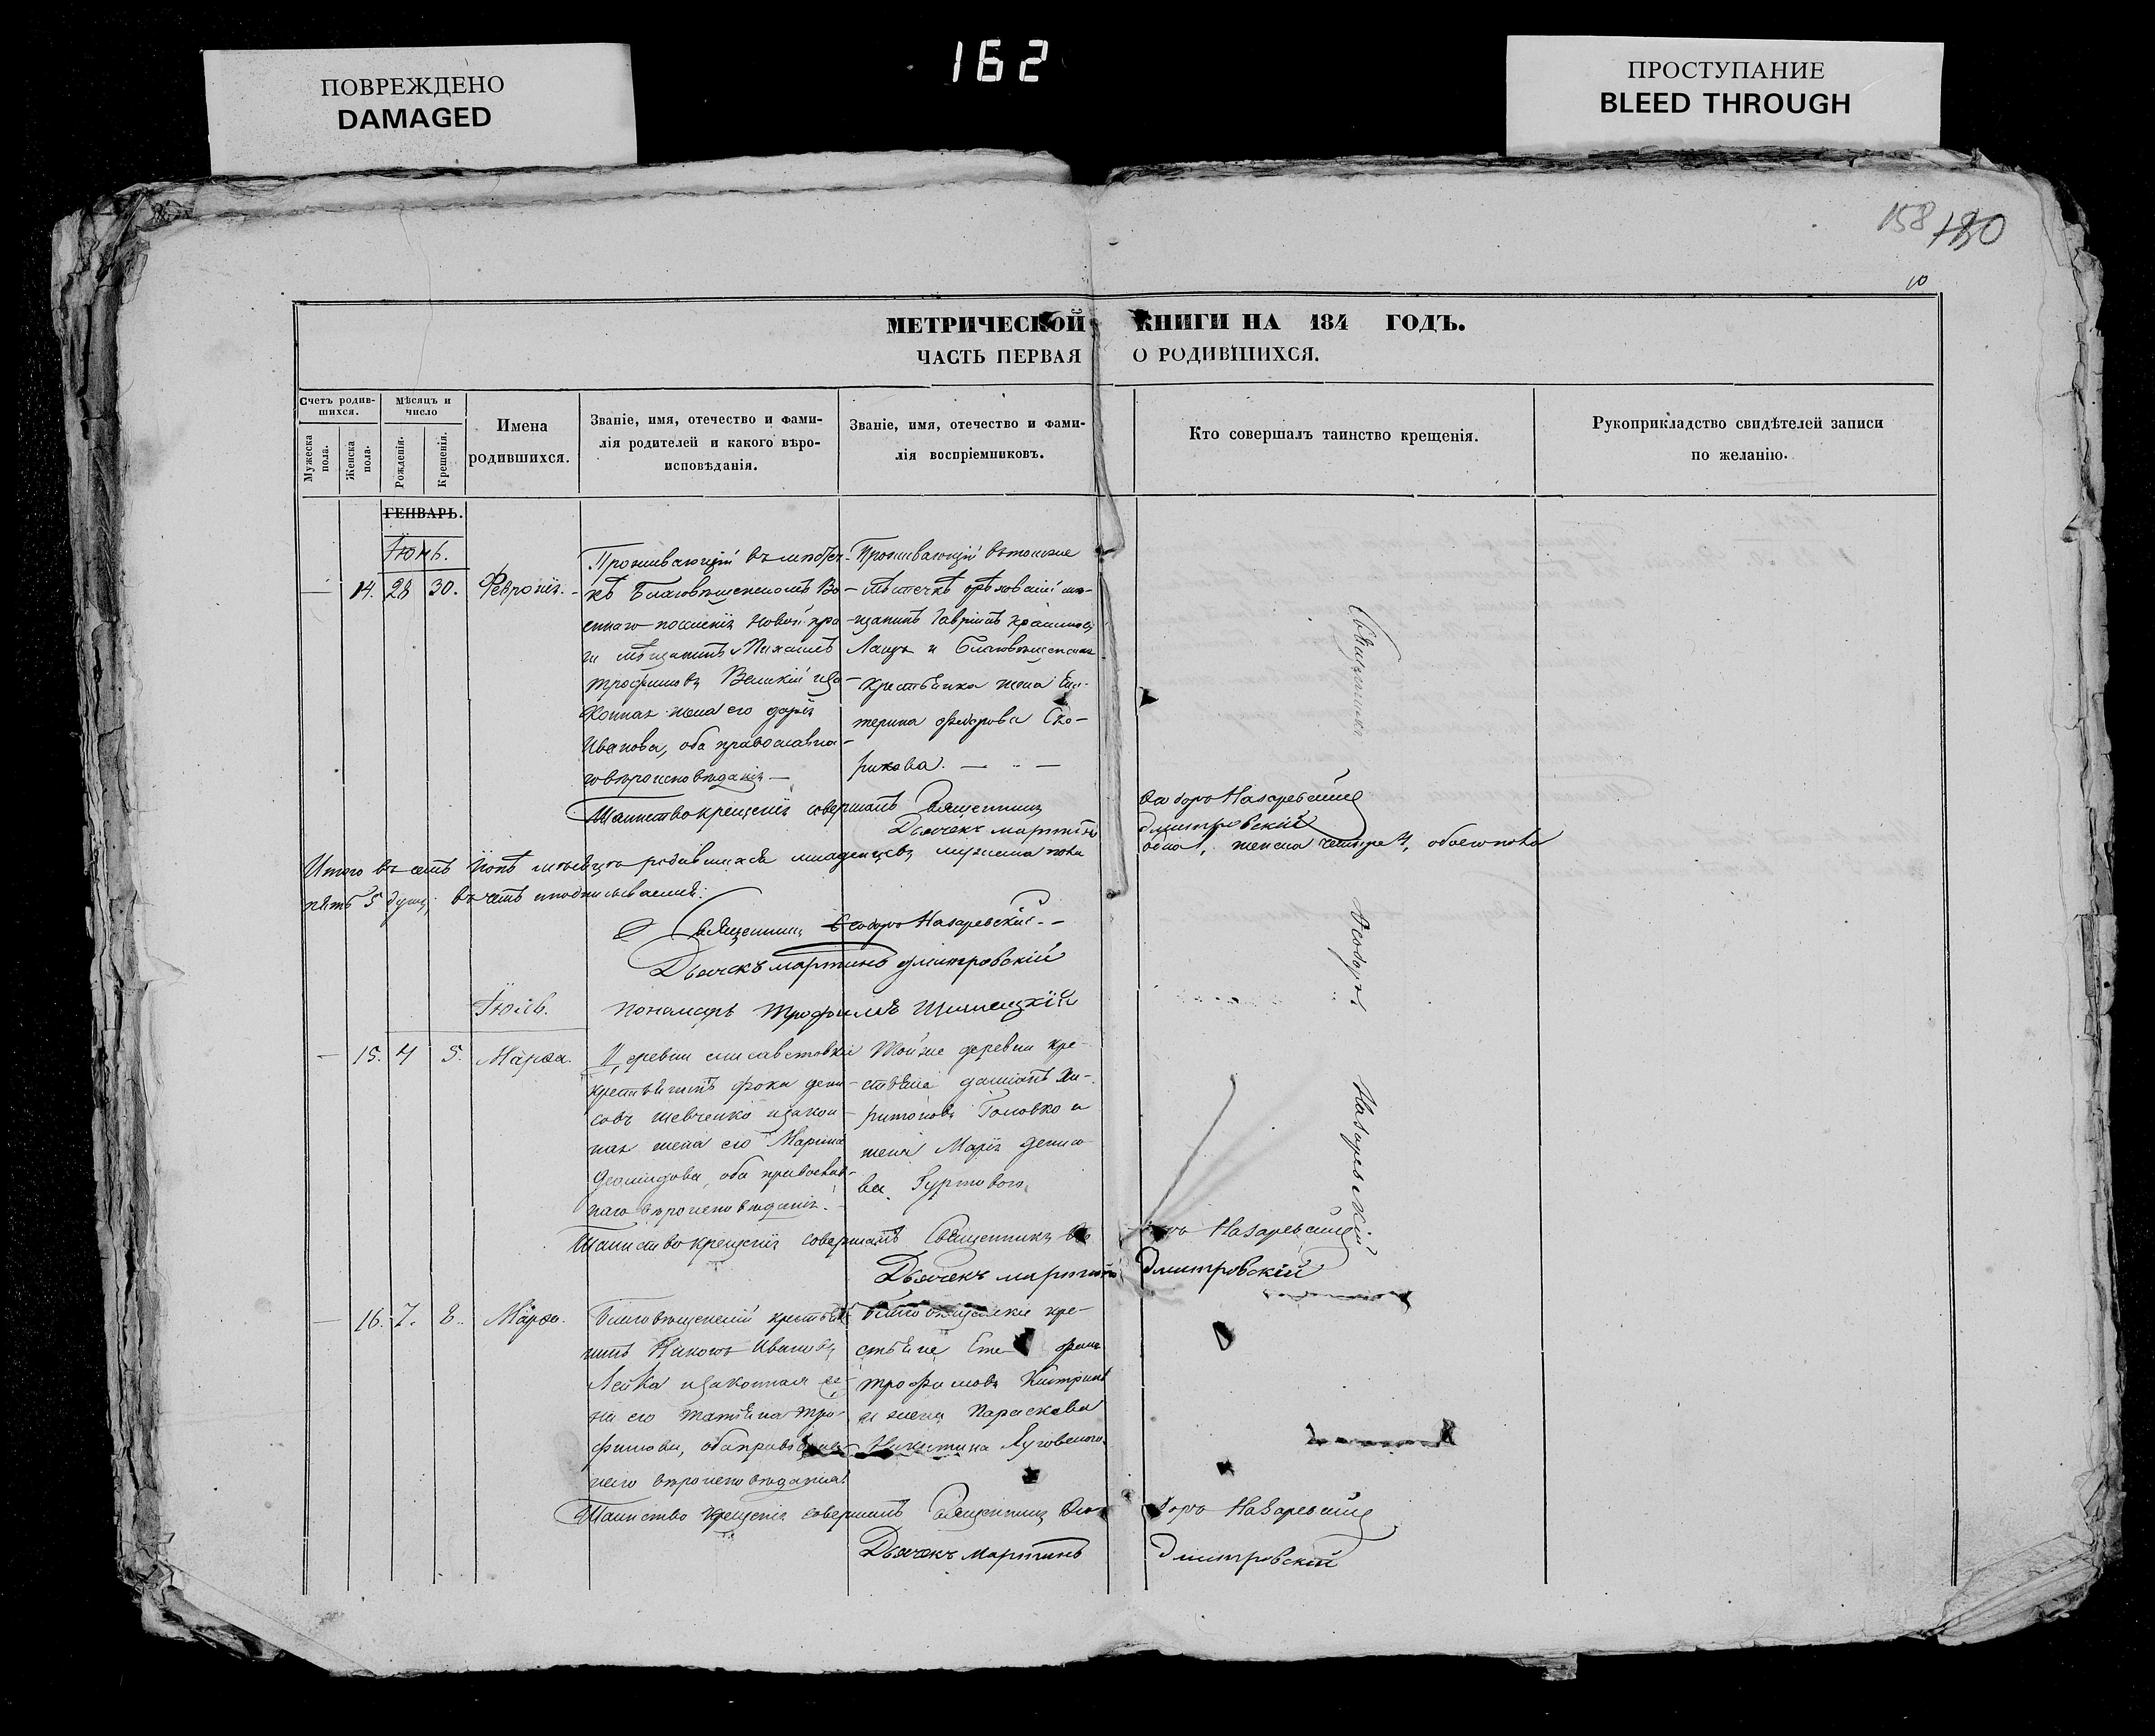 162
ПОВРЕЖДЕНО
DAMAGED
ПРОСТУПАНИЕ
BLEED THROUGH
158 130
10
МЕТРИЧЕСКОЙ КНИГИ НА 184 ГОДЪ.
ЧАСТЬ ПЕРВАЯ О РОДИВШИХСЯ.
Счетъ родив-
шихся.
Мужеска пола.
Женска пола.
Мѣсяцъ и
число
Рожденія.
Крещенія.
Имена
родившихся.
Званіе, имя, отечество и фами-
лія родителей и какого вѣро-
исповѣданія.
Званіе, имя, отечество и фами-
лія воспріемниковъ.
Кто совершалъ таинство крещенія.
Рукоприкладство свидѣтелей записи
по желанію.
ГЕНВАРЬ.
Іюнь.
— 14. 28 30. Февронія.
Проживающій въ мѣстеч-
кѣ Благовѣщенскомъ Во-
еннаго поселенія Новой пра-
ги мѣщанинъ Михаилъ
Трофимовъ Великій и за-
конная жена его Дарія
Иванова, оба православна-
го вѣроисповѣданія —
Проживающій въ томже
мѣстечкѣ
щанинъ Гавріилъ
и Благовѣщенская
крестьянка жена Ека-
терина Федорова Ско-
рикова. —
Таинство крещенія совершалъ Священникъ Ѳеодоръ Назаревскій
Дьячекъ Мартинъ Дмитровскій
Итого въ Іюнѣ мѣсяцѣ родившихся младенцевъ мужеска пола одна 1, женска четыре 4, обоего пола
пять 5 душъ; въ чемъ и подписываемся:
Священникъ Ѳеодоръ Назаревскій —
Дьячекъ Мартинъ Дмитровскій
Пономарь Трофимъ
Священникъ Ѳеодоръ Назаревскій
Іюль.
— 15. 4 5. Марѳа.
Деревни Елисаветовки
крестьянинъ Фока Дени-
совъ Шевченко и закон-
ная жена его Марина
Деомидова, оба православ-
наго вѣроисповѣданія. —
Тойже деревни кре-
стьяне Даміанъ Ха-
ритоновъ Головко и
жена Марія Денисо-
ва Гуртового.
Таинство крещенія совершалъ Священникъ Назаревскій
Дьячекъ Мартинъ Дмитровскій
— 16. 7. 8. Марѳа.
Благовѣщенскій крестья-
нинъ Никонъ Ивановъ
Лейка и законная же-
на его Татіана Тро-
фимова, оба православ-
наго вѣроисповѣданія.
Благовѣщенскіе кре-
стьяне
Трофимовъ
и жена Параскева
Никитина Луговского.
Таинство крещенія совершалъ Священникъ Ѳеодоръ Назаревскій
Дьячекъ Мартинъ Дмитровскій